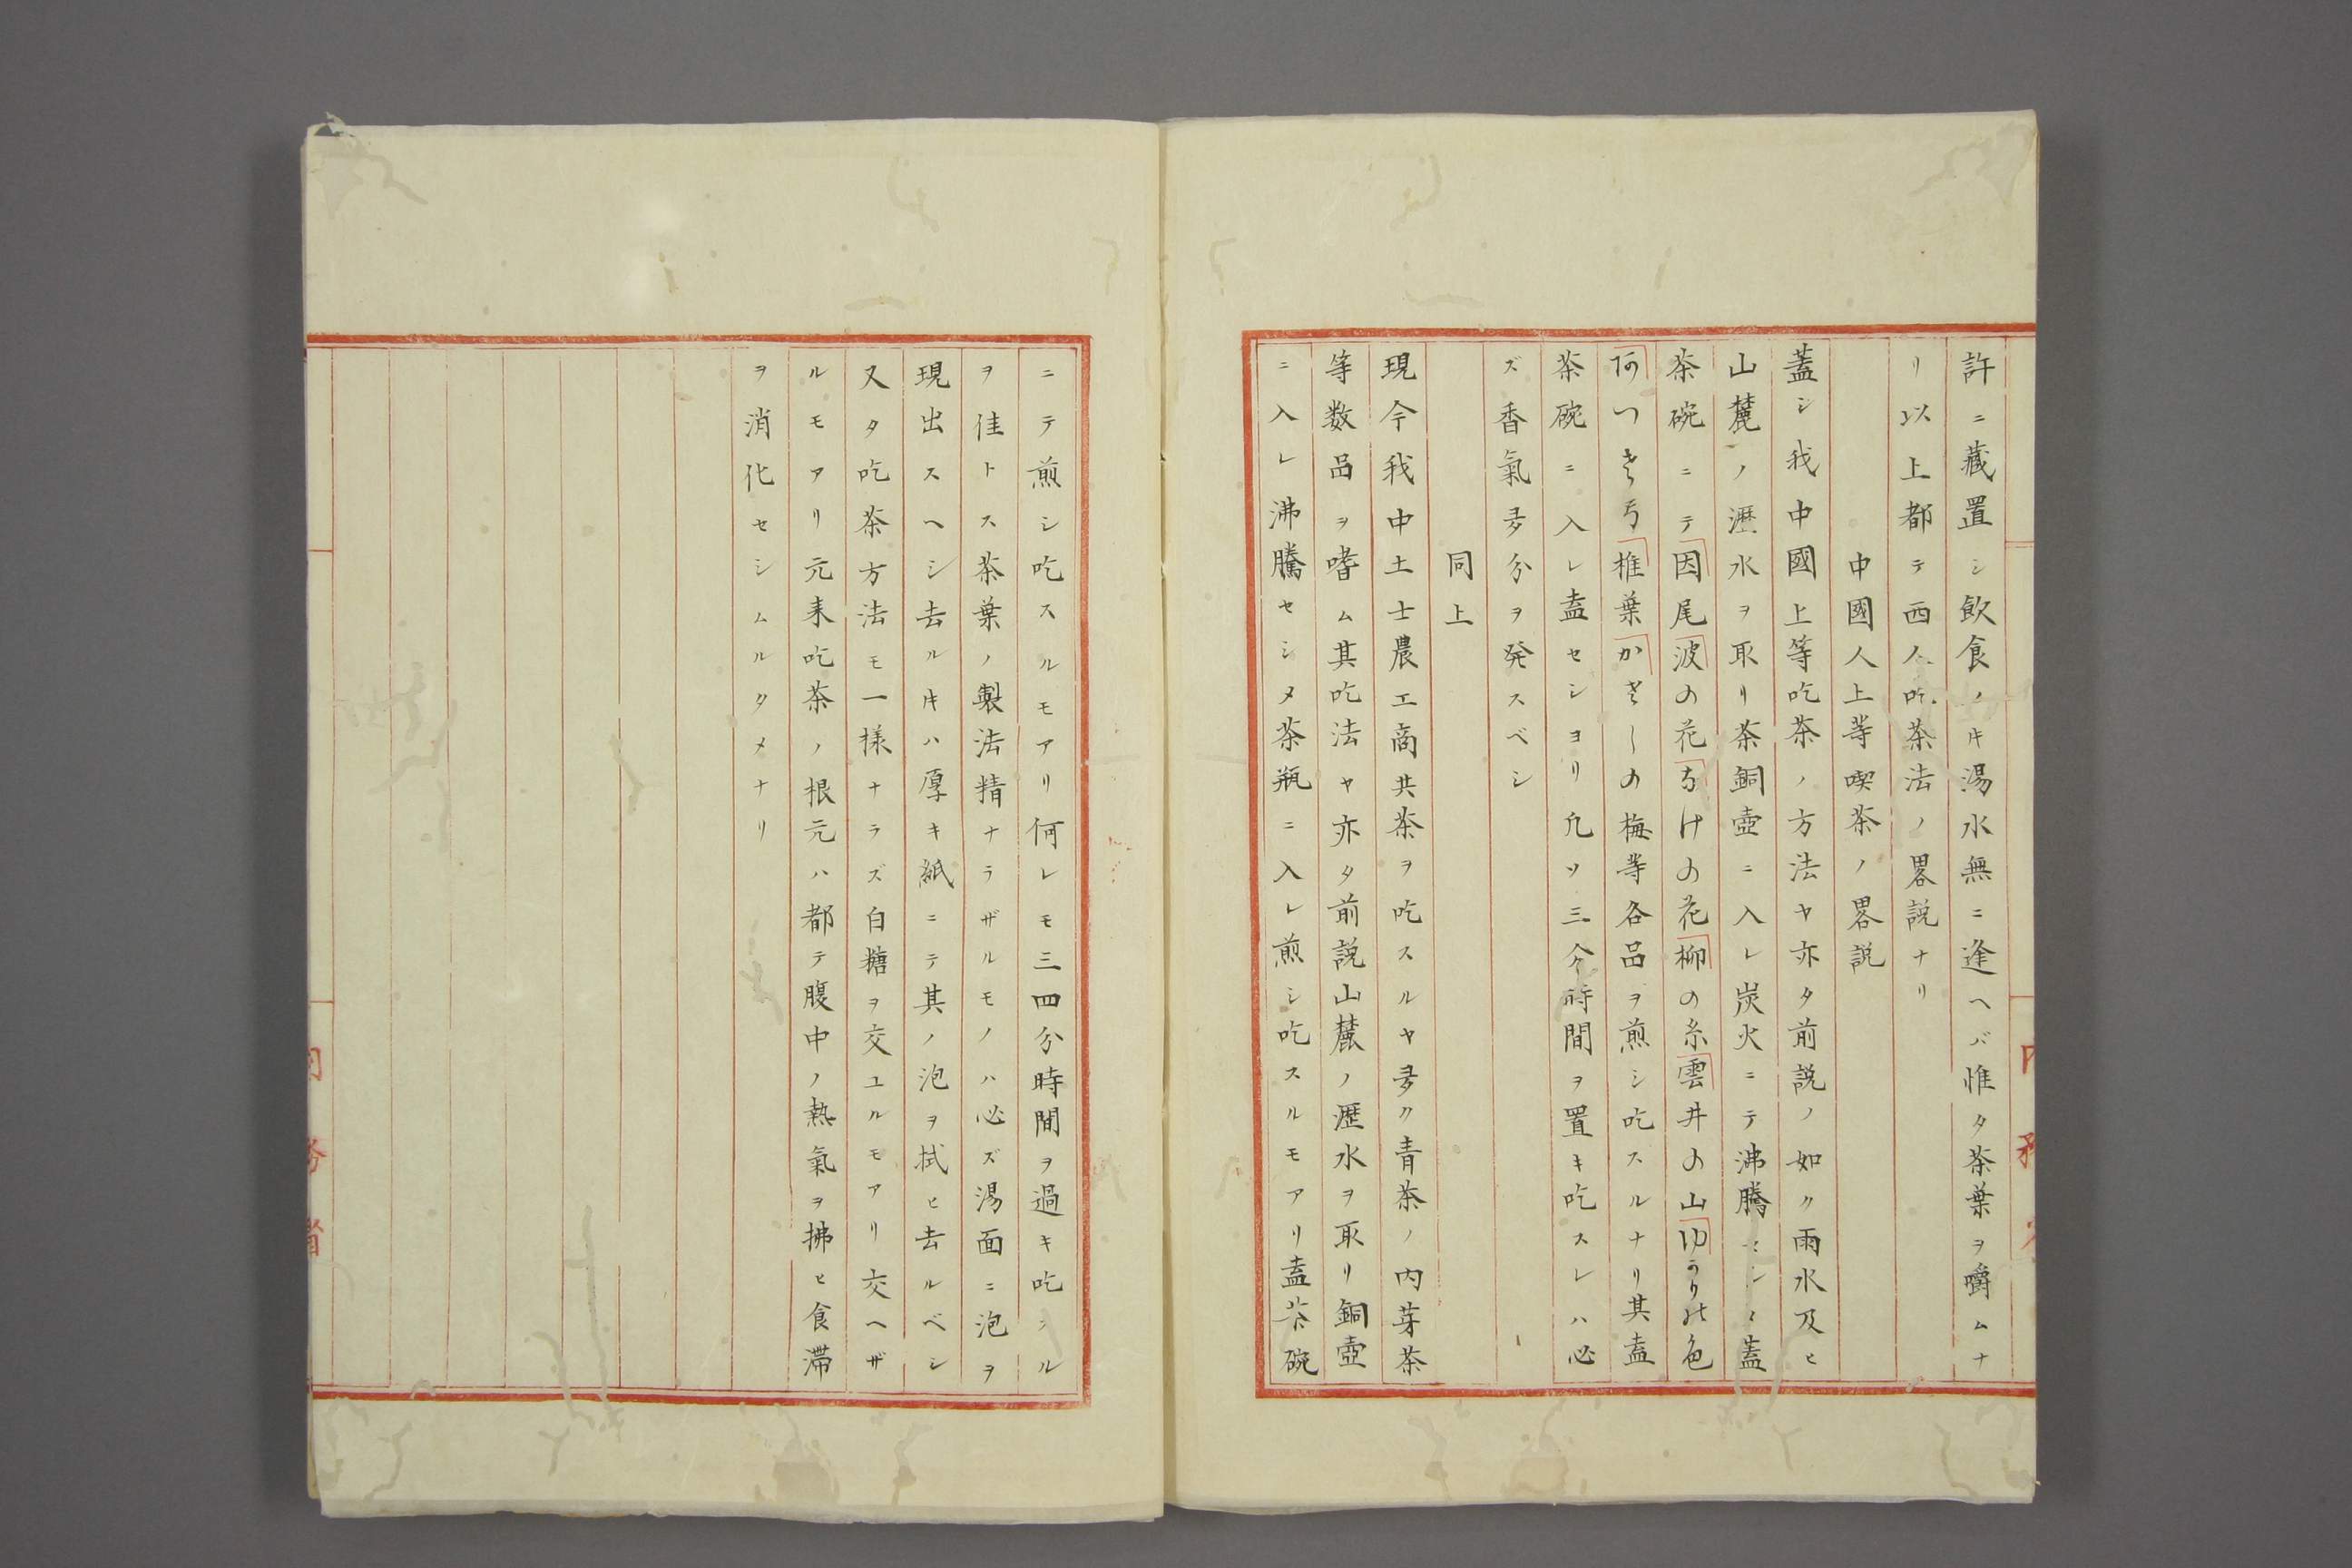 許ニ藏置シ飲食ノ𪜈湯水無ニ逢ヘバ惟タ茶葉ヲ嚼ムナ
リ以上都テ西人吃茶法ノ畧説ナリ
中國人上等喫茶ノ畧説
蓋シ我中國上等吃茶ノ方法ヤ亦タ前説ノ如ク雨水及ヒ
山麓ノ瀝水ヲ取リ茶銅壺ニ入レ炭火ニテ沸騰セシメ蓋
茶碗ニテ因尾波の花なけの花柳の糸雲井の山ゆかり能色
椎葉かさしの梅等各品ヲ煎シ吃スルナリ其盖
茶碗ニ入レ盖セシヨリ凡ソ三分時間ヲ置キ吃スレハ必
ズ香氣多分ヲ発スベシ
同上
現今我中土士農工商共茶ヲ吃スルヤ多ク青茶ノ内芽茶
等数品ヲ嗜ム其吃法ヤ亦タ前説山麓ノ瀝水ヲ取リ銅壺
ニ入レ沸騰セシメ茶瓶ニ入レ煎シ吃スルモアリ盖茶碗
ニテ煎シ吃スルモアリ何レモ三四分時間ヲ過キ吃シル
ヲ佳トス茶葉ノ製法精ナラザルモノハ必ズ湯面ニ泡ヲ
現出スヘシ去ル𪜈ハ厚キ紙ニテ其ノ泡ヲ拭ヒ去ルベシ
又タ吃茶方法モ一様ナラズ白糖ヲ交ユルモアリ交ヘザ
ルモアリ元来吃茶ノ根元ハ都テ腹中ノ熱氣ヲ拂ヒ食滞
ヲ消化セシムルタメナリ
内務省